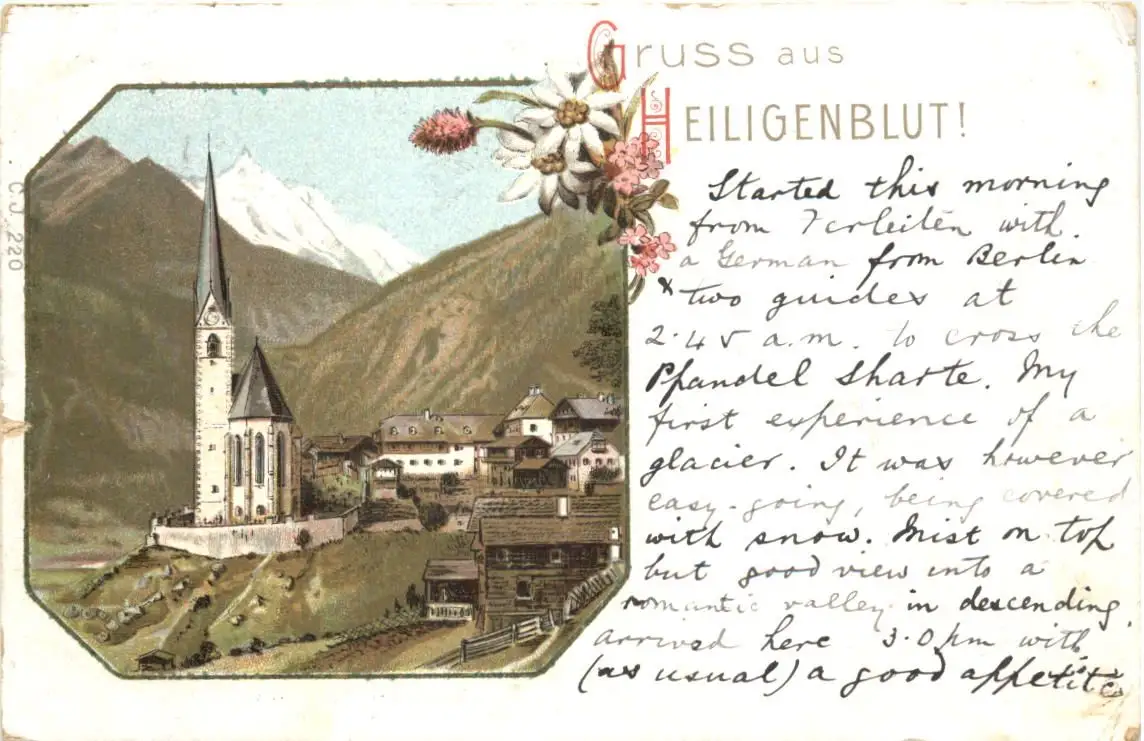 Gruss aus
Heiligenblut!
C.J. 2220
Started this morning
from Ferleiten with
a German from Berlin
& two guides at
2.45 a.m. to cross the
Pfandel Sharte. My
first experience of a
glacier. It was however
easy-going, being covered
with snow. Mist on top
but good view into a
romantic valley in descending.
arrived here 3.0 pm with
(as usual) a good appetite